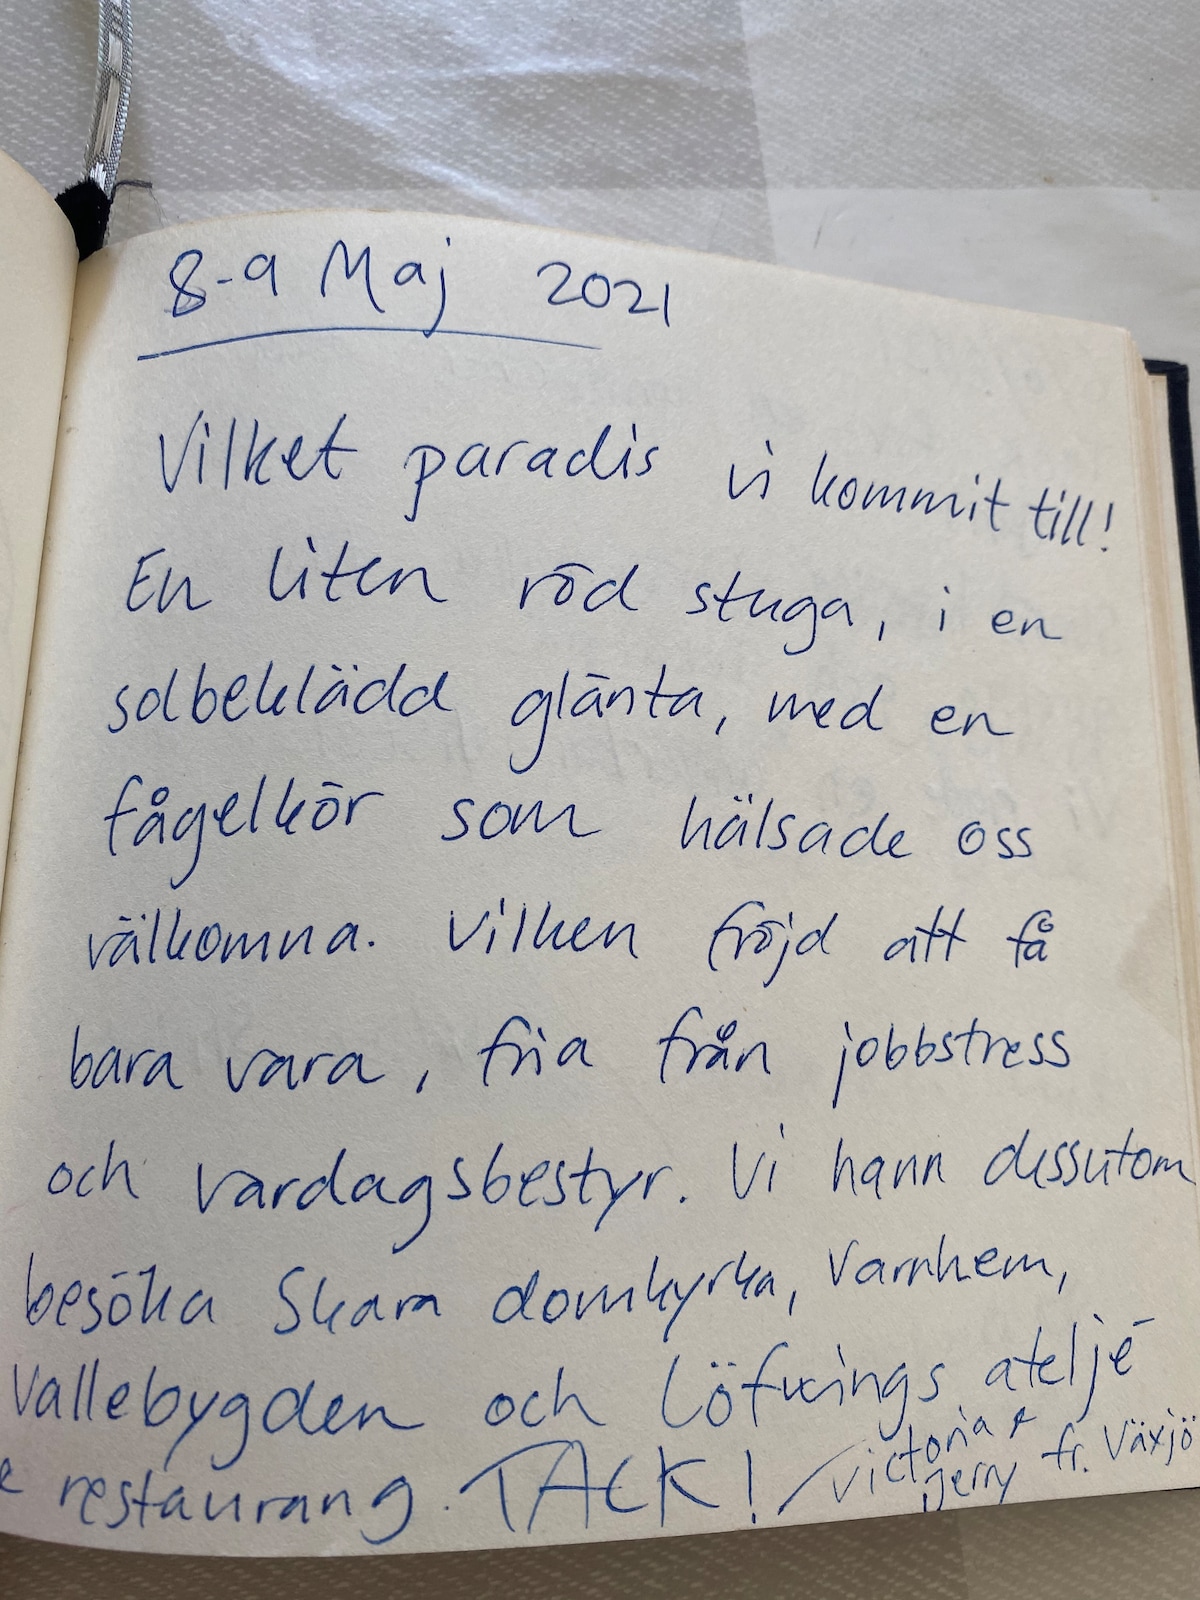 8-9 Maj 2021
Vilket paradis vi kommit till!
En liten röd stuga, i en
solbeklädd glänta, med en
fågelkör som hälsade oss
välkomna. Vilken fröjd att få
bara vara, fria från jobbstress
och vardagsbestyr. Vi hann dessutom
besöka Skara domkyrka, Varnhem,
Vallebygden och Löfwings ateljé
& restaurang. TACK! / Victoria &
Jerry fr. Växjö